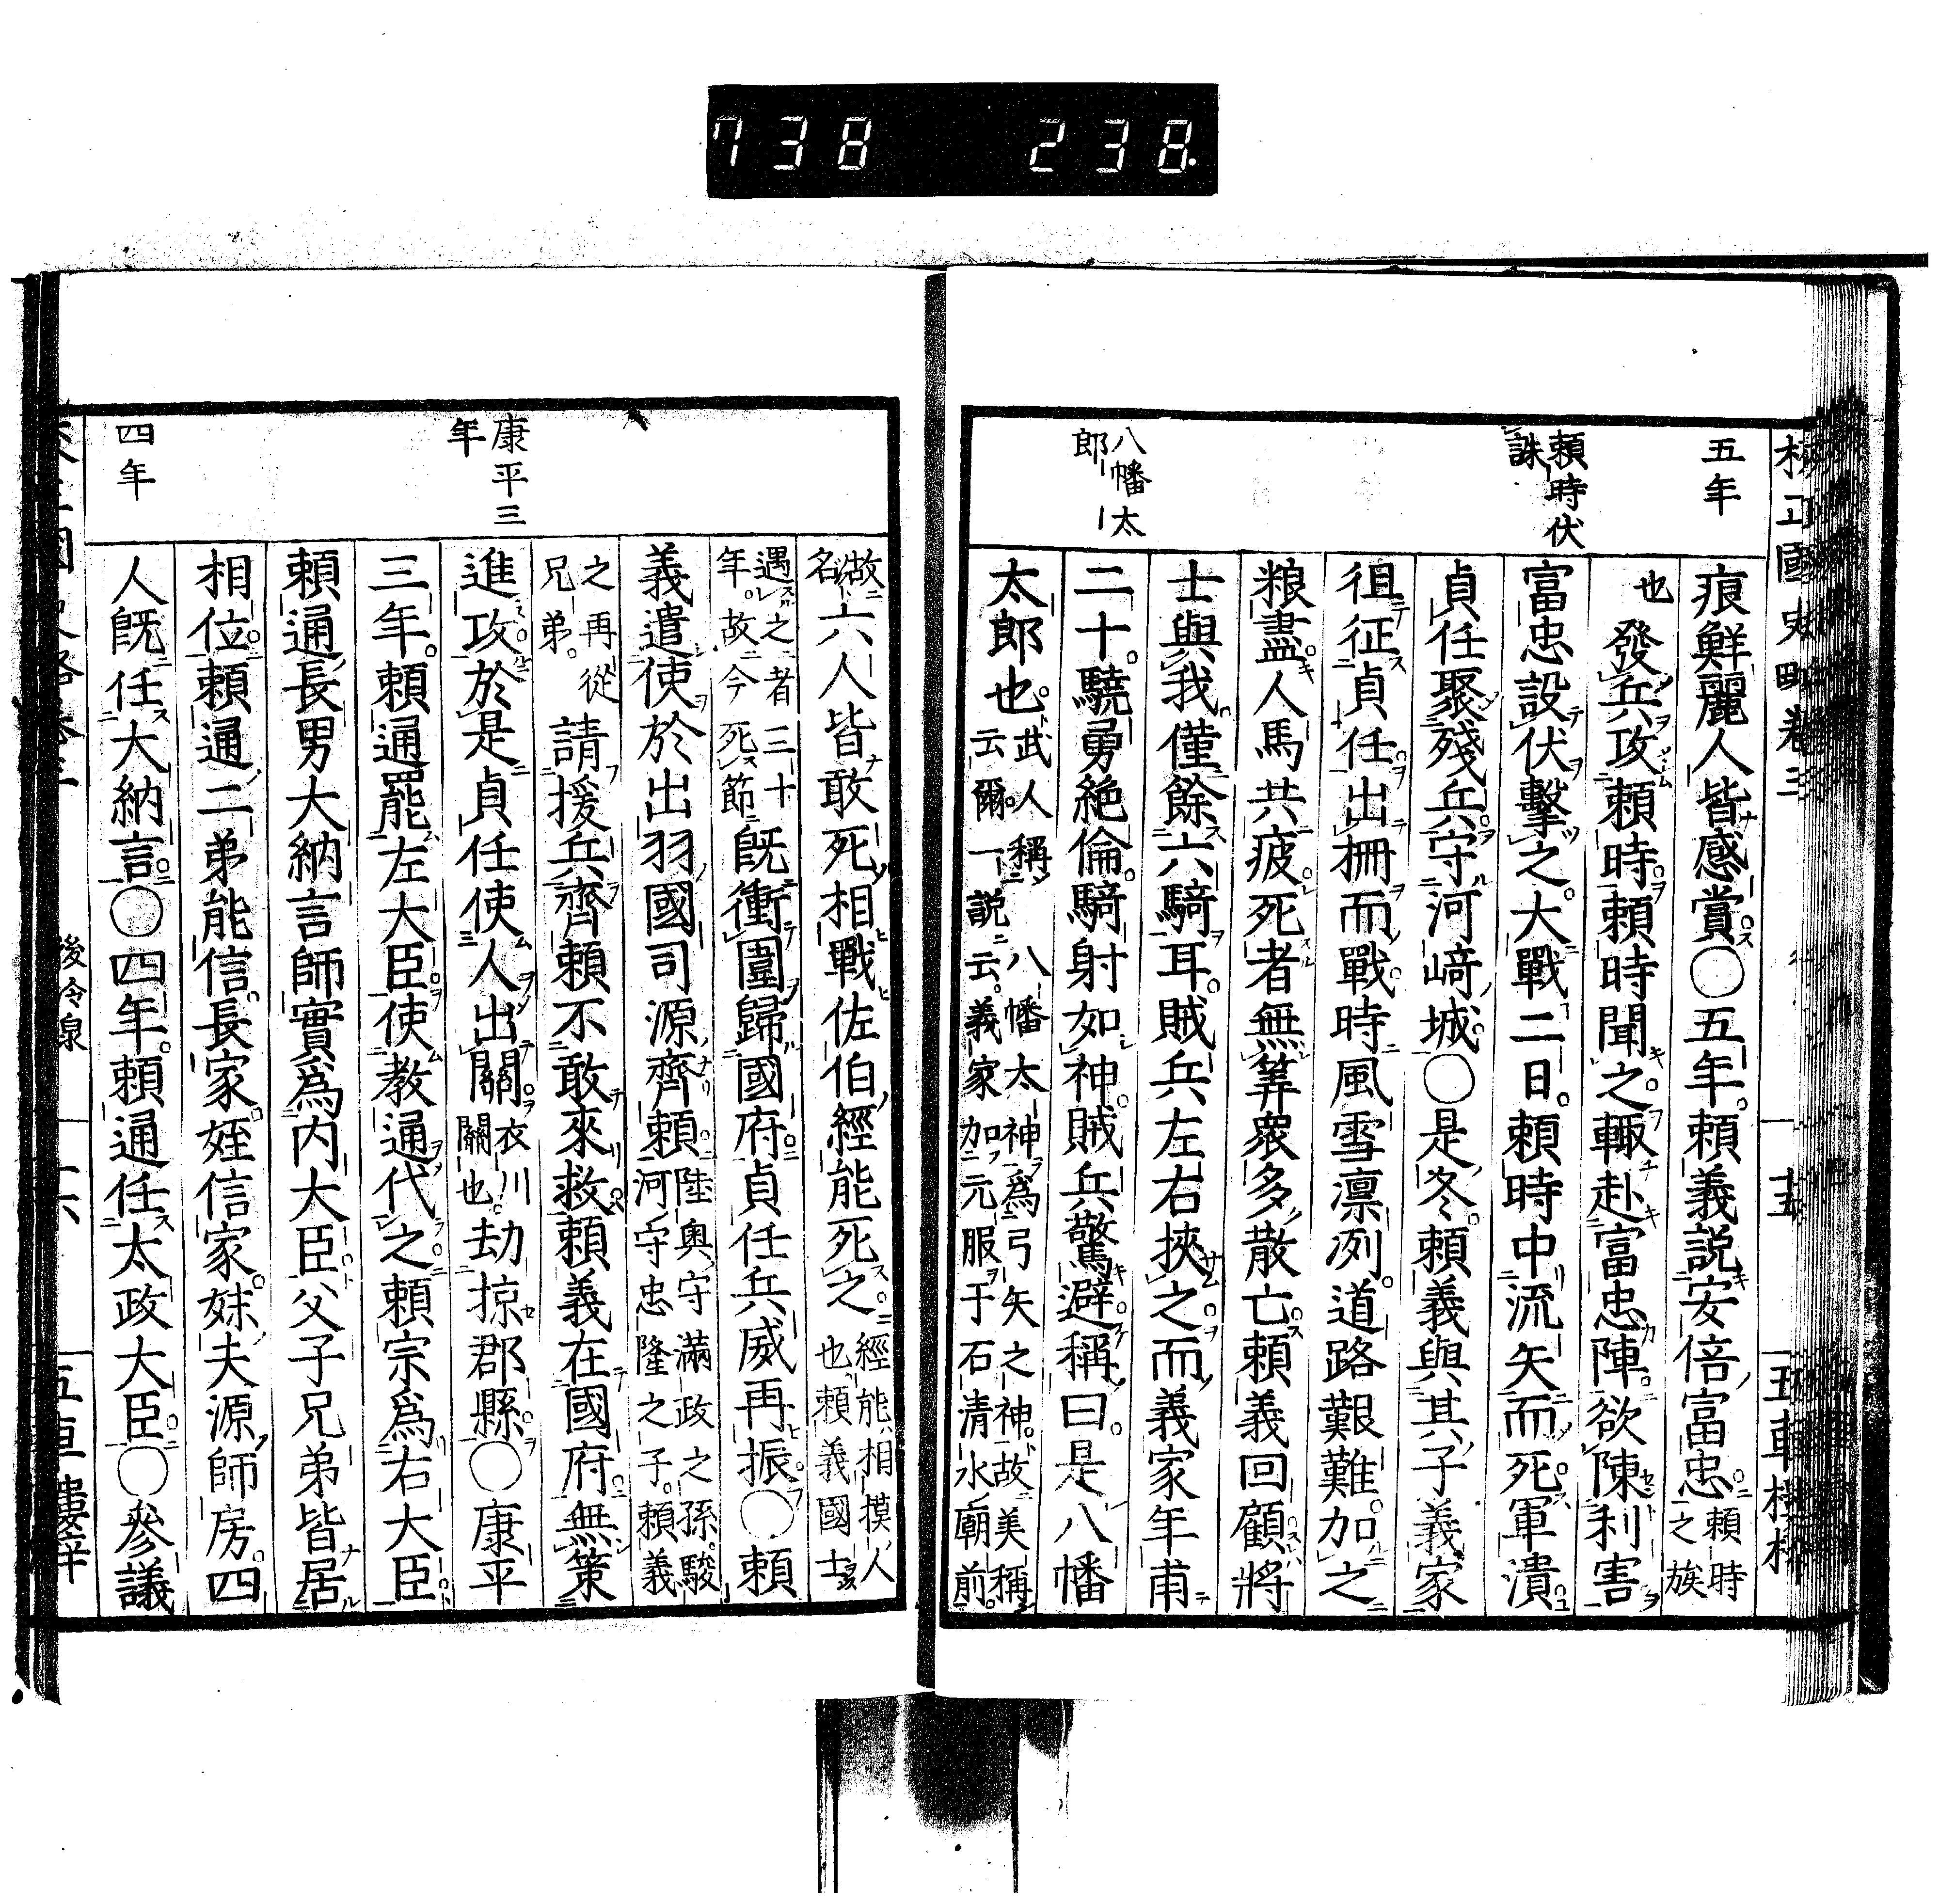 738 238.
校正國史略卷三
十五
五車樓梓
五年
頼時伏
誅
八幡太
郎
痕鮮麗人皆感賞○五年頼義説安倍富忠頼時之族
也發兵攻頼時頼時聞之輙赴富忠陣欲陳利害
富忠設伏擊之大戰二日頼時中流矢而死軍潰
貞任聚殘兵守河﨑城○是冬頼義與其子義家
徂征貞任出柵而戰時風雪凛冽道路艱難加之
粮盡人馬共疲死者無筭衆多散亡頼義回顧將
士與我僅餘六騎耳賊兵左右挾之而義家年甫
二十驍勇絶倫騎射如神賊兵驚避稱曰是八幡
太郎也武人稱八幡太神爲弓矢之神故美稱云爾一説云義家加元服于石清水廟前
康平三
年
四年
故倣名六人皆敢死相戰佐伯經能死之經能相摸人也頼義國士
遇之者三十年故今死節既衝圍歸國府貞任兵威再振○頼
義遣使於出羽國司源齊頼陸奧守滿政之孫駿河守忠隆之子頼義
之再從兄弟請援兵齊頼不敢來救頼義在國府無策
進攻於是貞任使人出關衣川關也劫掠郡縣○康平
三年頼通罷左大臣使教通代之頼宗爲右大臣
頼通長男大納言師實爲内大臣父子兄弟皆居
相位頼通二弟能信長家姪信家妹夫源師房四
人既任大納言○四年頼通任太政大臣○參議
後令泉
十六
五車樓梓